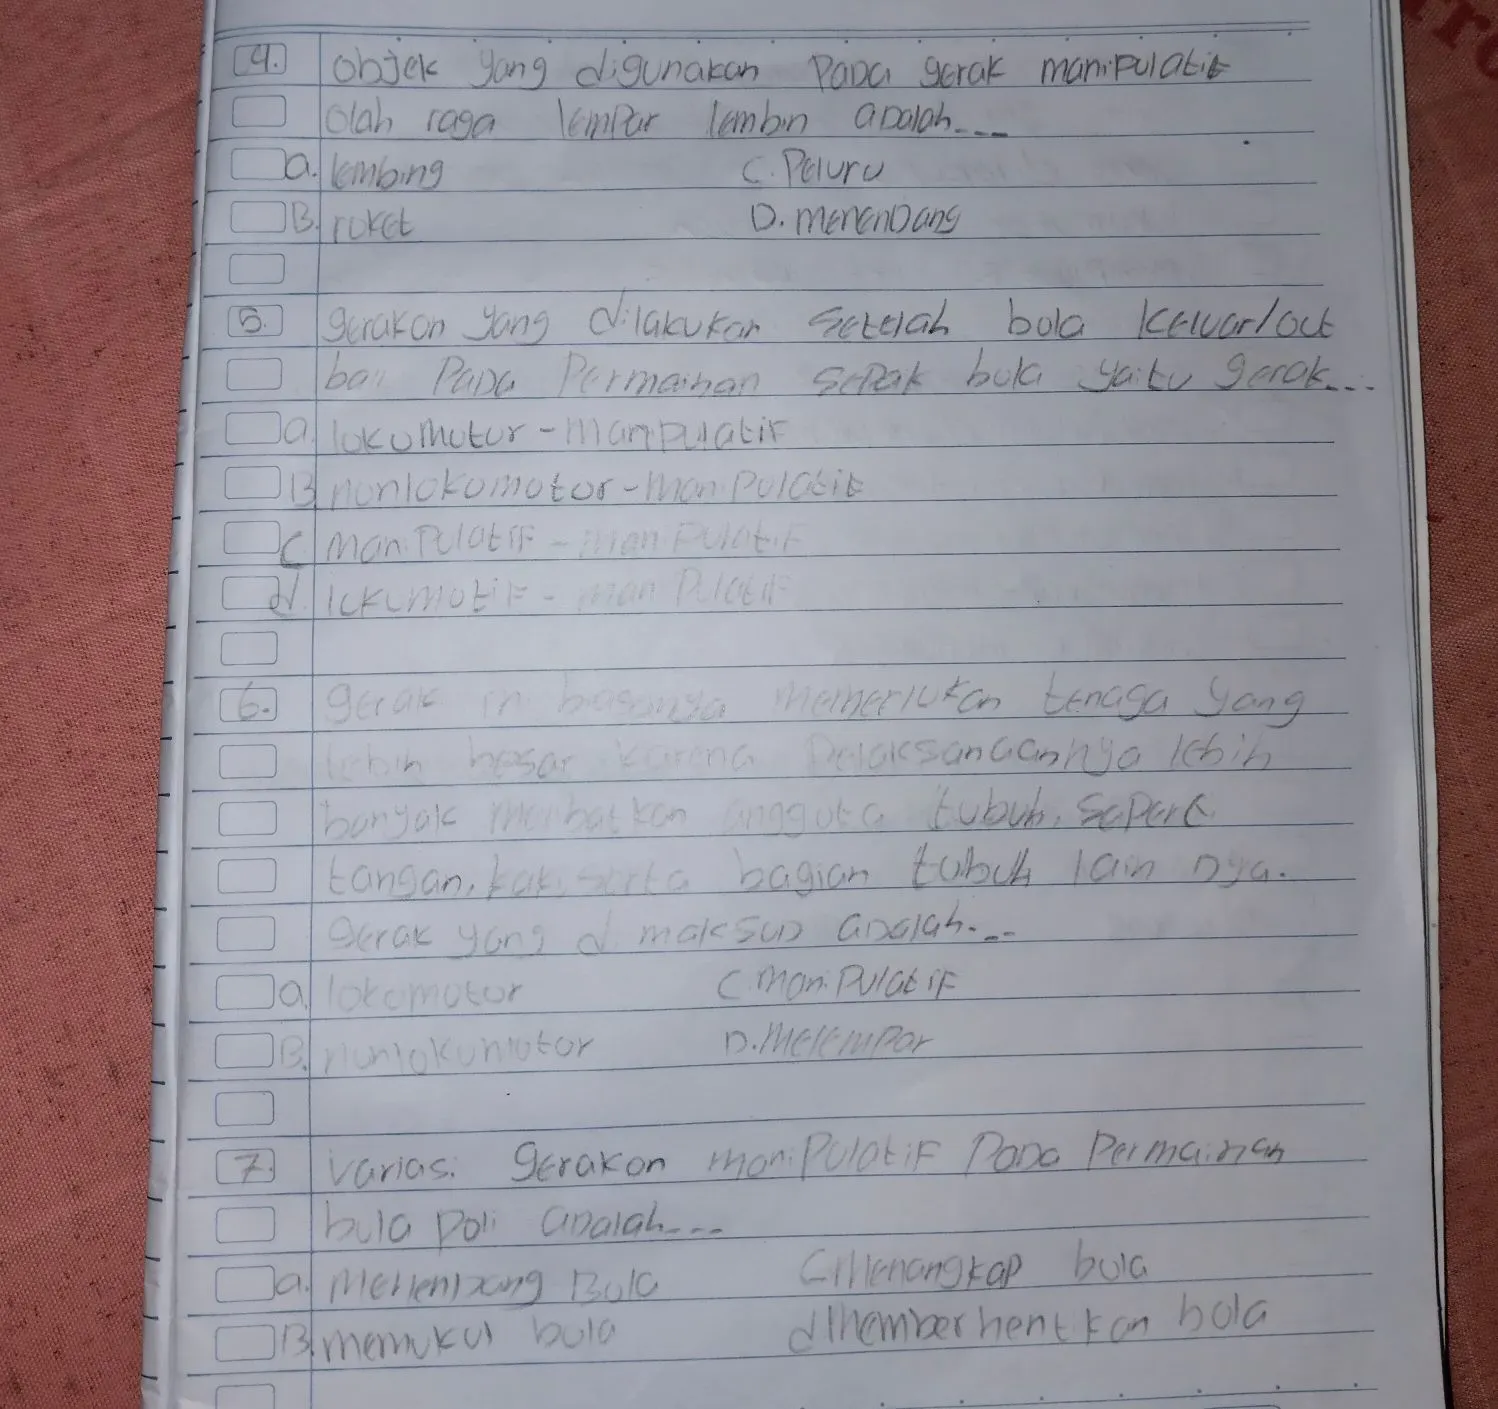 4. objek yang digunakan pada gerak manipulatif
olah raga lempar lembin adalah....
a. lembing C. Peluru
B. roket D. menendang
5. gerakan yang dilakukan setelah bola keluar/out
ball pada Permainan sepak bola yaitu gerak...
a. lokomotor - manipulatif
B. nonlokomotor - manipulatif
C. manipulatif - manipulatif
d. lokomotif - manipulatif
6. gerak in biasanya memerlukan tenaga yang
lebih besar karena pelaksanaannya lebih
banyak anggota tubuh, seperti
tangan, kaki serta bagian tubuh lain nya.
gerak yang d maksud adalah...
a. lokomotor C. manipulatif
B. nonlokomotor D. Melempar
7. variasi gerakan manipulatif pada Permainan
bola poli adalah....
a. Menendang Bola C. Menangkap bola
B. memukul bola d. memberhentikan bola